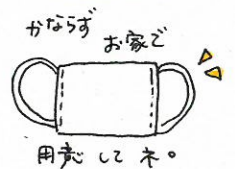 かならず
お家で
用意してネ。